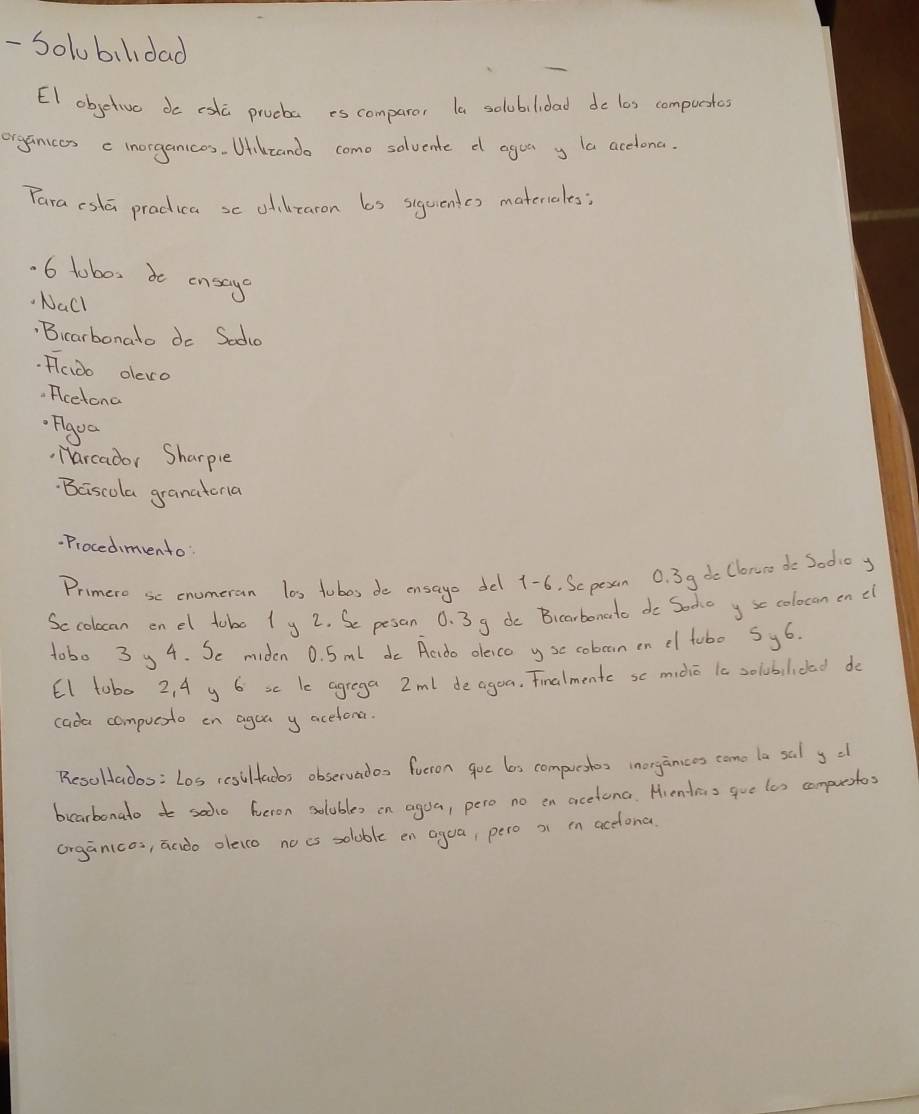 - Solubilidad
El objetivo de está prueba es comparar la solubilidad de los compuestos
orgánicos e inorganicos. Utilizando como solvente el agua y la acetona.
Para está practica se utilizaron los siguientes materiales:
· 6 tubos de ensayo
· NaCl
· Bicarbonato de Sodio
· Ácido oleico
· Acetona
· Agua
· Marcador Sharpie
· Báscula granatoria
· Procedimiento:
Primero se enumeran los tubos de ensayo del 1-6. Se pesan 0.3g de Cloruro de Sodio y
Se colocan en el tubo 1 y 2. Se pesan 0.3 g de Bicarbonato de Sodio y se colocan en el
tobo 3 y 4. Se miden 0.5 mL de Ácido oleico y se colocan en el tubo 5 y 6.
El tubo 2,4 y 6 se le agrega 2 ml de agua. Finalmente se midió la solubilidad de
cada compuesto en agua y acetona.
Resultados: Los resultados observados fueron que los compuestos inorgánicos como la sal y el
bicarbonato de sodio fueron solubles en agua, pero no en acetona. Mientras que los compuestos
orgánicos, ácido oleico no es soluble en agua, pero si en acetona.